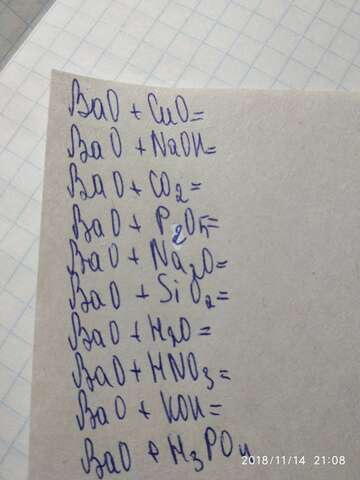 BaO + CuO=
BaO + NaOH=
BaO + CO2=
BaO + P2O5=
BaO + Na2O=
BaO + SiO2=
BaO + H2O=
BaO + HNO3=
BaO + KOH=
BaO + H3PO4
2018/11/14 21:08